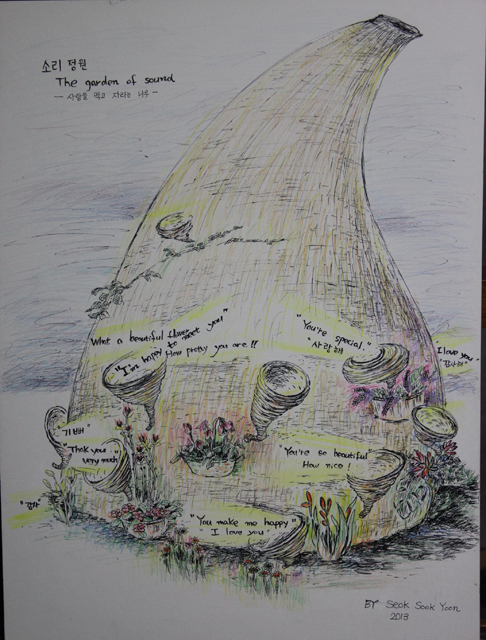 소리 정원
The garden of sound
- 사랑을 먹고 자라는 나무 -
What a beautiful flower
"I'm happy to meet you"
How pretty you are !!
"You're special"
"사랑해"
I love you
"감사해"
"기뻐"
"Thak you
very much
You're so beautiful"
How nice !
"You make me happy"
I love you
BY Seok Sook Yoon
2013